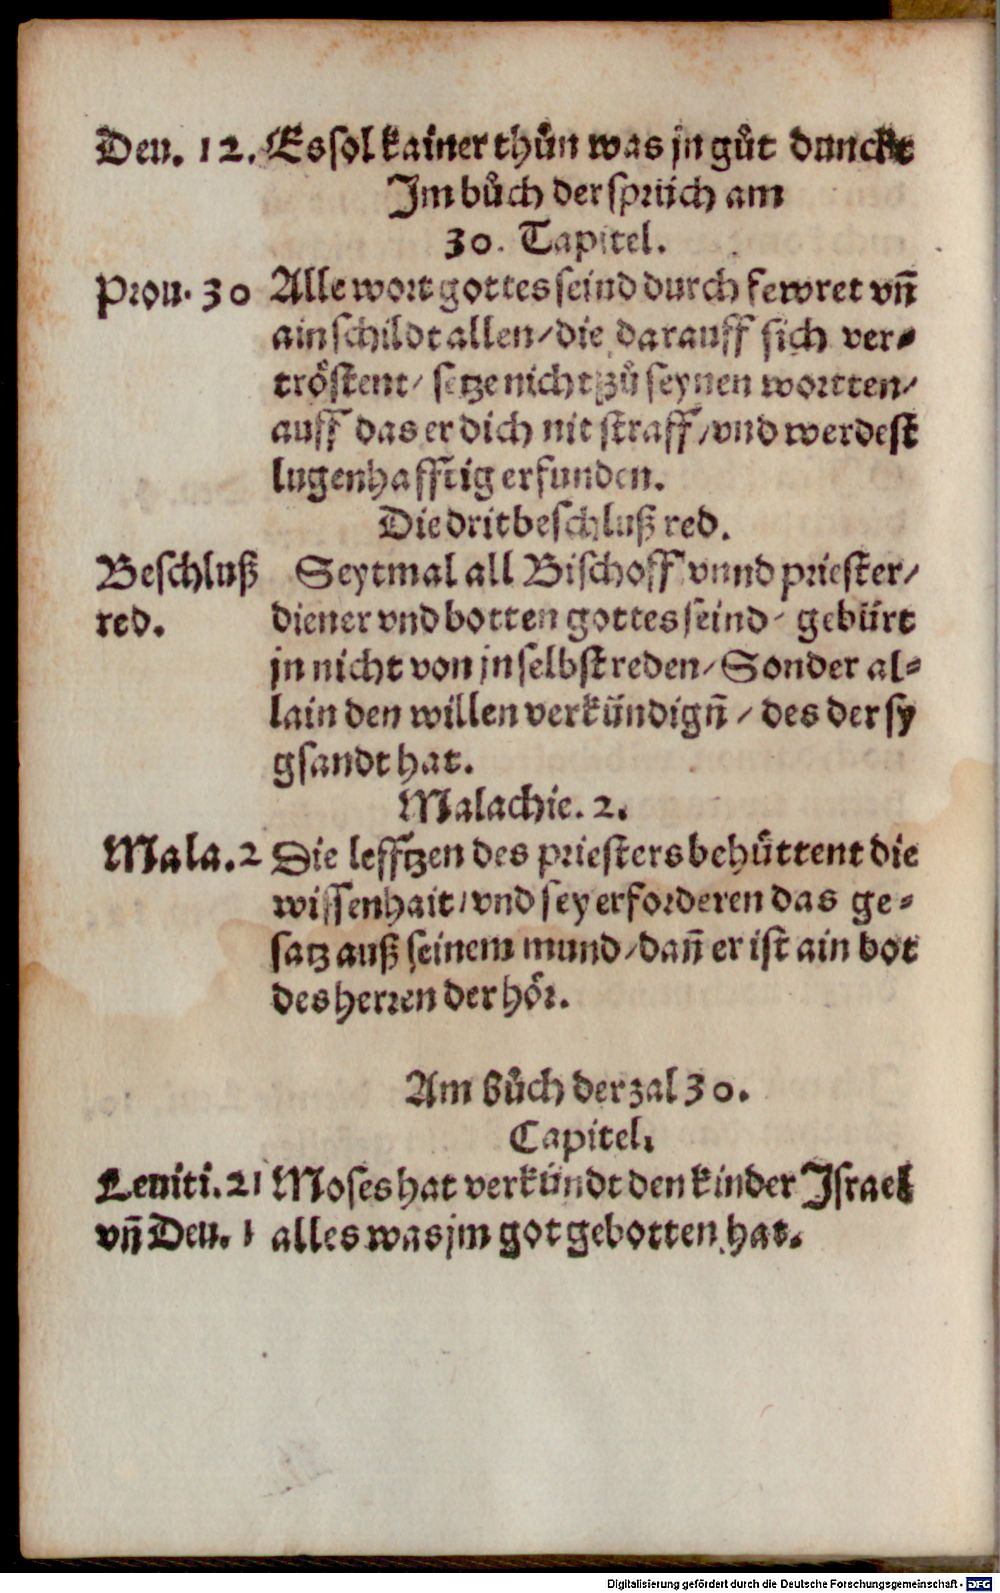 Deu. 12. Es sol kainer thůn was jn gůt dunckt
Im bůch der sprüch am
30. Capitel.
Prou. 30 Alle wort gottes seind durch fewret vñ
ain schildt allen/ die darauff sich ver-
tröstent/ setze nicht zů seynen wortten/
auff das er dich nit straff/ vnd werdest
lugenhafftig erfunden.
Die drit beschluß red.
Beschluß Seytmal all Bischoff vnnd priester/
red. diener vnd botten gottes seind/ gebürt
jn nicht von jn selbst reden/ Sonder al-
lain den willen verkündigñ/ des der sy
gsandt hat.
Malachie. 2.
Mala. 2 Die lefftzen des priesters behüttent die
wissenhait/ vnd sey erforderen das ge-
satz auß seinem mund/ dañ er ist ain bot
des herren der hör.
Am Bůch der zal 30.
Capitel.
Leuiti. 21 Moses hat verkündt den kinder Israel
vñ Deu. 1 alles was jm got gebotten hat.
Digitalisierung gefördert durch die Deutsche Forschungsgemeinschaft - DFG